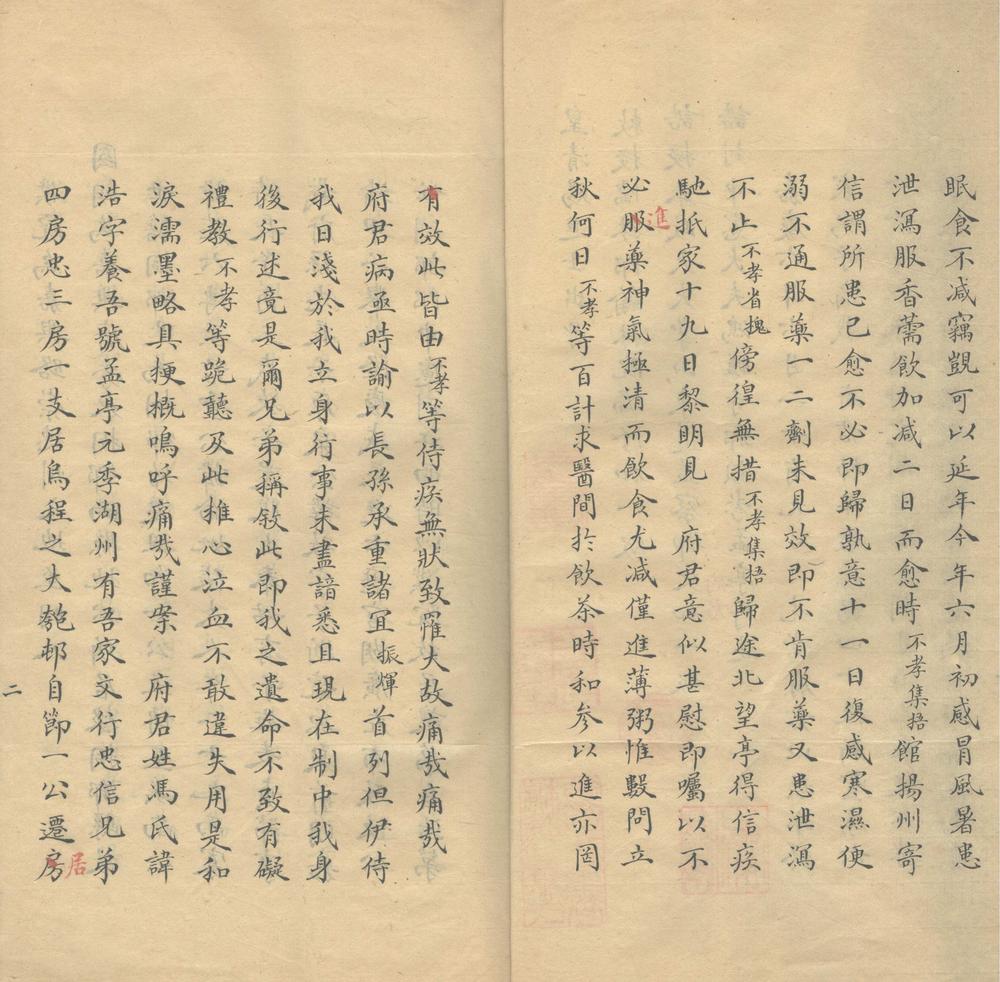 眠食不减竊覬可以延年今年六月初感冒風暑患
泄瀉服香薷飲加减二日而愈時不孝集捂館揚州寄
信謂所患已愈不必即歸孰意十一日復感寒濕便
溺不通服藥一二劑未見效即不肯服藥又患泄瀉
不止不孝省槐傍徨無措不孝集捂歸途北望亭得信疾
馳抵家十九日黎明見　府君意似甚慰即囑以不
必服藥神氣極清而飲食尤减僅進薄粥惟數問立
進
秋何日不孝等百計求醫間於飲茶時和参以進亦罔
有效此皆由不孝等侍疾無狀致罹大故痛哉痛哉
府君病亟時諭以長孫承重諸冝振煇首列但伊侍
我日淺於我立身行事未盡諳悉且現在制中我身
後行述竟是爾兄弟稱敘此即我之遺命不致有礙
禮教不孝等跪聽及此椎心泣血不敢違失用是和
淚濡墨略具梗概嗚呼痛哉謹案　府君姓馮氏諱
浩字養吾號孟亭元季湖州有吾家文行忠信兄弟
四房忠三房一支居烏程之大匏邨自節一公遷房
居
二